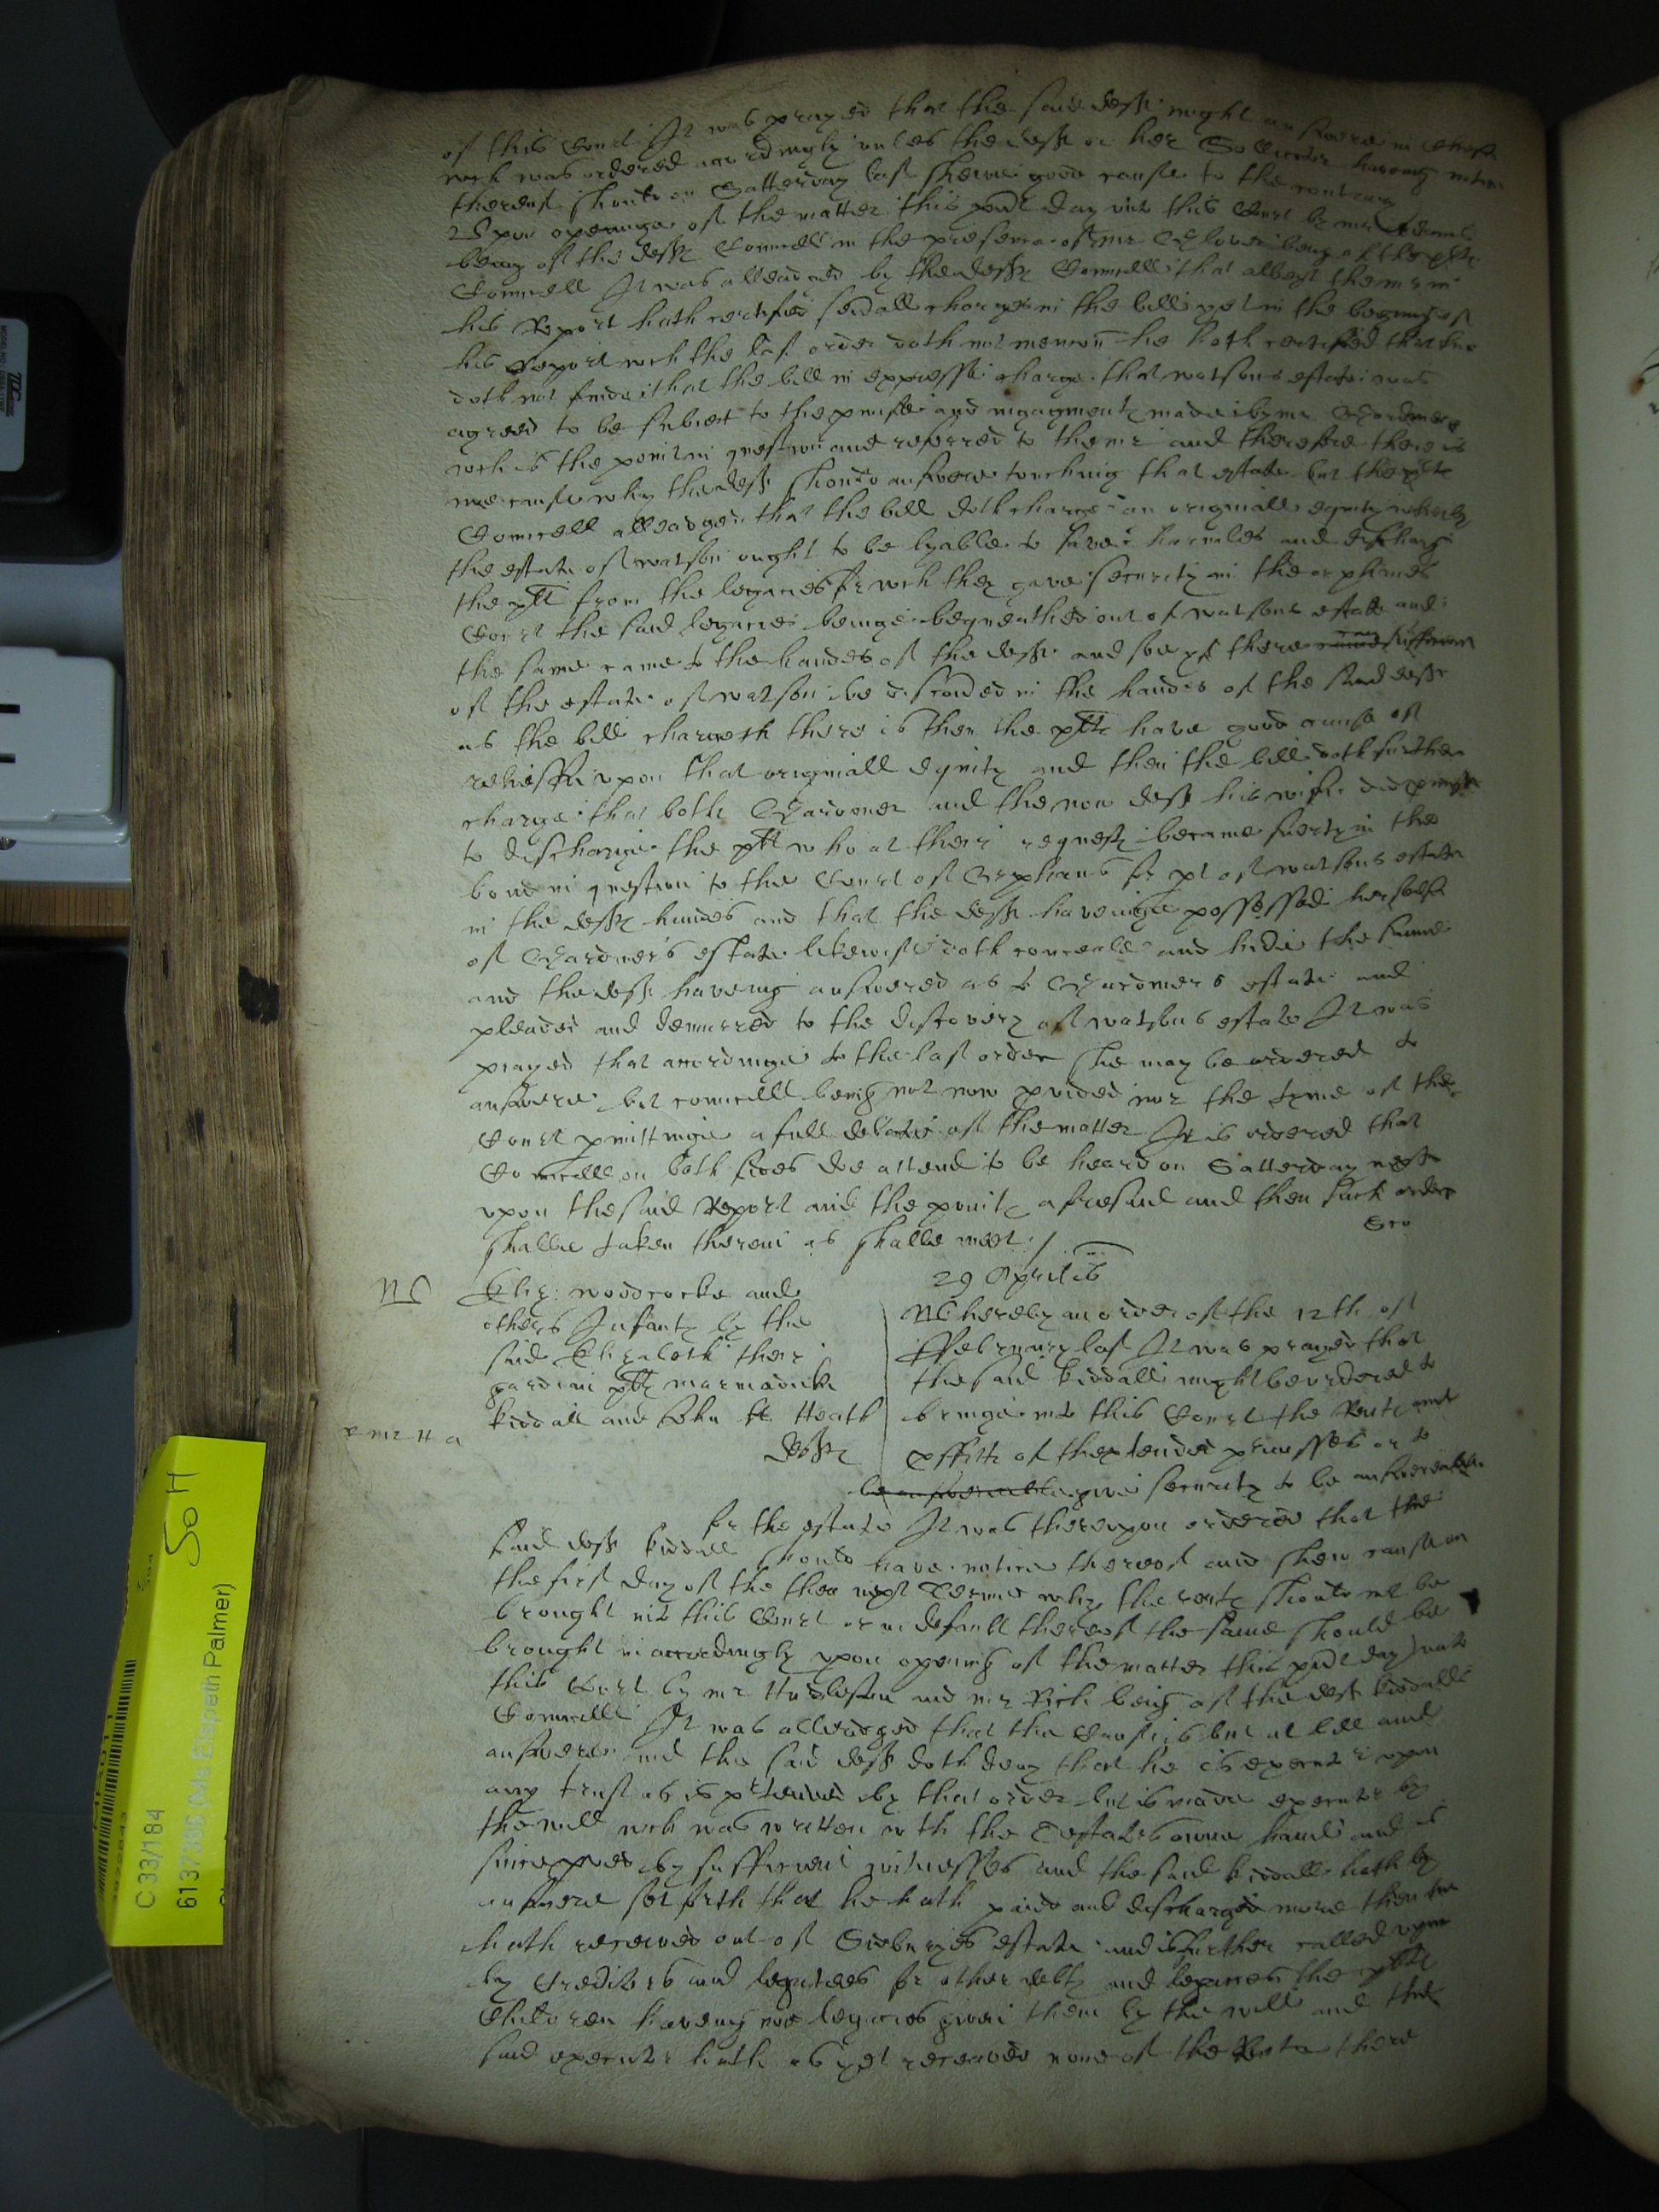 of this Court It was prayed that the said deft might answere in cheife
wch was ordered accordingly unles the deft or her Sollicitor haveing notice
thereof should on Satterday last shewe good cause to the contrary
Upon openinge of the matter this pnt day unto this Court by mr
being of the defts Councell in the presence of mr Glover being of the plts
Councell It was alleadged by the defts Councell that albeyt the mr in
his Report hath certified severall charges in the bill yet in the beginning of
his Report wch the last order doth not mencon he hath certified that hee
doth not finde that the bill in expresse charge that watsons estate was
agreed to be subiect to the promise and ingagments made by mr Gardiner
wch is the point in question and referred to the mr and therefore there is
noe cause why the deft should answere touching that estate but the plts
Councell alleadged that the bill doth charge an originall equity whereby
the estate of watson ought to be lyable to save harmles and discharge
the plt from the legacies for wch they gave security in the orphanes
Court the said legacies beinge bequeathed out of watsons estate and
the same came to the handes of the deft and soe yf there any sufficient
of the estate of watson be discovered in the handes of the said deft
as the bill chargeth there is then the plts have good cause of
releiffe upon that originall equity and then the bill doth further
charge that both Gardner and the now deft his wife did promise
to discharge the plt who at their request became suerty in the
bond in question to the Court of Orphans for pt of watsons estate
in the defts handes and that the deft haveinge possessed her selfe
of Gardners estate likewise doth conceale and hide the same
and the deft haveing answered as to Gardners estate and
pleaded and demurred to the discovery of watsons estate It was
prayed that accordinge to the last order she may be ordered to
answere but councell being not now pvided nor the tyme of the
Court pmittinge a full debate of the matter It is ordered that
Councell on both sides doe attend to be heard on Satterday next
upon the said Report and the points aforesaid and then such order
shalbe taken therein as shalbe meet /
29 Aprilis
Eliz: woodcocke and
others Infants by the
said Elizabeth their
gardein plts marmaduke
kiddall and John Heath
defts
Whereby an order of the 12th of
ffebruary last It was prayed that
the said kiddall might be ordered to
bringe into this Court the Rents and
pffitts of the extended premisses or to
be answerable give security to be answereable
for the estate It was thereupon ordered that the
said deft kiddall should have notice thereof and shew cause on
the first day of the then next Terme why the rents should not be
brought into this Court or in default thereof the same should be
brought in accordingly upon opening of the matter this pnt day unto
this Court by mr Hudleston and mr Rich being of the deft kiddalls
Councell It was alleadged that the Cause is but at bill and
answere and the said deft doth deny that he is executor upon
any trust as is ptended by that order but is made executor by
the will wch was written wth the Testators owne hand and is
since proved by sufficient witnesses and the said kiddall hath by
answere set forth that he hath paid and discharged more then he
hath received out of estate and is further called upon
by Creditors and legatees for other debts and legacies the plts
Children haveing noe legacies given them by the will and the
said executor hath as yet received none of the Rents there
C 33/184
6137386 (Ms Elspeth Palmer)
So H